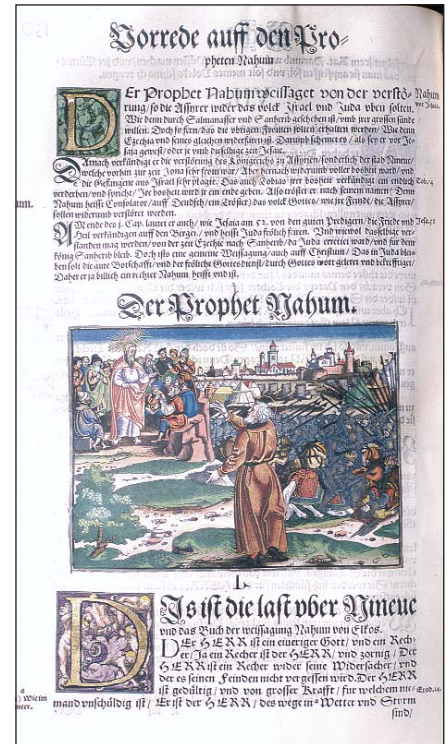 Vorrede auff den Pro=
pheten Nahum.
DEr Prophet Nahum weissaget von der verstö=
rung / so die Assyrer wider das volck Jsrael vnd Juda vben solten,
Wie denn durch Salmanasser vnd Sanherib geschehen ist / vmb jrer grossen sünde
willen. Doch so fern / das die vbrigen Fromen solten erhalten werden / Wie denn
Ezechia vnd seines gleichen widerfaren ist. Darumb scheinet es / als sey er vor Je=
saja gewest / oder je vmb dieselbige zeit Jesaie.
DArnach verkündigt er die verstörung des Königreichs zu Assyrien / sonderlich der stad Nineue /
welche vorhin zur zeit Jona seer from war / Aber hernach widerumb voller bosheit ward / vnd
die Gefangene aus Jsrael seer plagte. Das auch Tobias jrer bosheit verkündigt ein endlich
verderben / vnd spricht / Jre bosheit wird jr ein ende geben. Also tröstet er nach seinem namen / Denn
Nahum heisst Consolator / auff Deudsch / ein Tröster / das volck Gottes / wie jre Feinde / die Assyrer /
sollen widerumb verstöret werden.
AM ende des j. Cap. lautet er auch / wie Jesaia am 52. von den guten Predigern / die Friede vnd
Heil verkündigen auff den Bergen / vnd heisst Juda frölich feiren. Vnd wiewol dasselbige ver=
standen mag werden / von der zeit Ezechie nach Sanherib / da Juda errettet ward / vnd für dem
könig Sanherib bleib. Doch ists eine gemeine Weissagung / auch auff Christum / Das in Juda blei=
ben solt die gute Botschafft / vnd der fröliche Gottesdienst / durch Gottes wort geleret vnd bekrefftiget /
Daher er ja billich ein rechter Nahum heisst vnd ist.
Der Prophet Nahum.
I.
DJs ist die last vber Nineue
vnd das Buch der weissagung Nahum von Elkos.
DEr HERR ist ein eiueriger Gott / vnd ein Rech=
er / Ja ein Recher ist der HERR / vnd zornig / Der
HERR ist ein Recher wider seine Widersacher / vnd
der es seinen Feinden nicht vergessen wird. Der HERR
ist gedültig / vnd von grosser Krafft / für welchem nie=
mand vnschüldig ist / Er ist der HERR / des wege in Wetter vnd Sturm
sind /